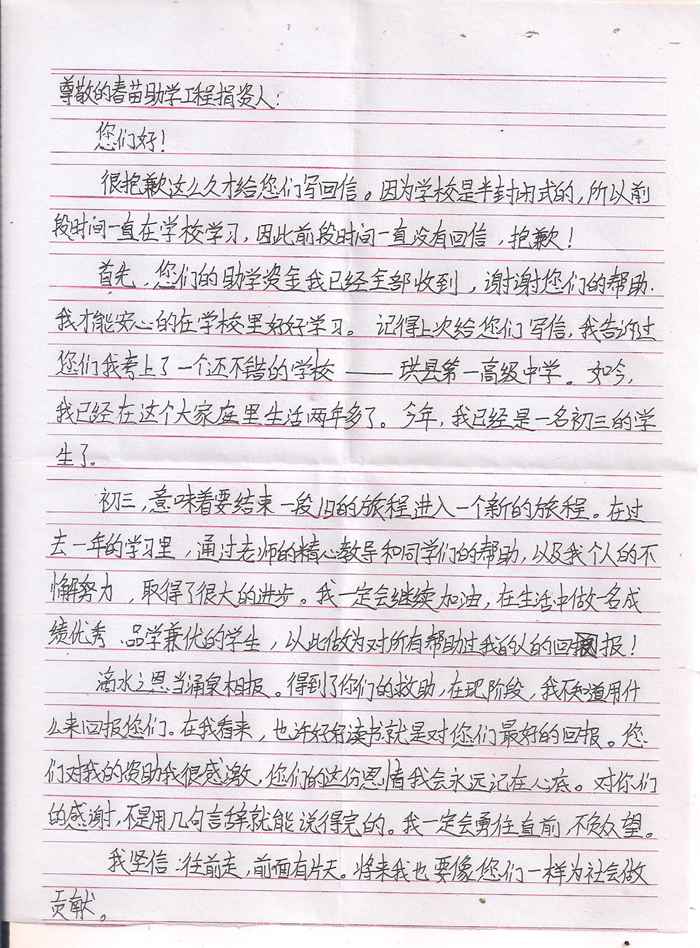 尊敬的春苗助学工程捐资人：
您们好！
很抱歉这么久才给您们写回信。因为学校是半封闭式的，所以前
段时间一直在学校学习，因此前段时间一直没有回信，抱歉！
首先，您们的助学资金我已经全部收到，谢谢您们的帮助.
我才能安心的在学校里好好学习。 记得上次给您们写信，我告许过
您们我考上了一个还不错的学校 —— 珙县第一高级中学。如今，
我已经在这个大家庭里生活两年多了。今年，我已经是一名初三的学
生了.
初三，意味着要结束一段旧的旅程进入一个新的旅程。在过
去一年的学习里，通过老师的精心教导和同学们的帮助，以及我个人的不
懈努力，取得了很大的进步。我一定会继续加油，在生活中做一名成
绩优秀、品学兼优的学生，以此做为对所有帮助过我的人的回报！
滴水之恩当涌泉相报。得到了你们的救助，在现阶段，我不知道用什
么来回报您们。在我看来，也许好好读书就是对您们最好的回报。您
们对我的资助我很感激，您们的这份恩情我会永远记在心底。对你们
的感谢，不是用几句言辞就能说得完的。我一定会勇往直前，不负众望。
我坚信：往前走，前面有片天。将来我也要像您们一样为社会做
贡献。